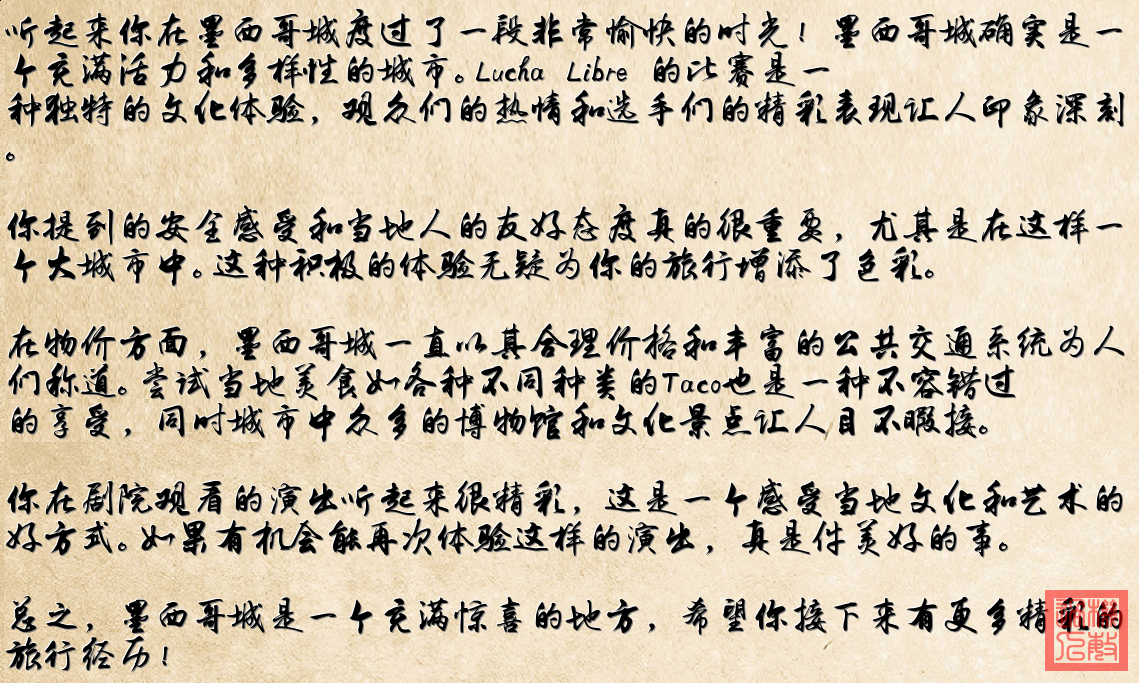 听起来你在墨西哥城度过了一段非常愉快的时光！墨西哥城确实是一
个充满活力和多样性的城市。Lucha Libre 的比赛是一
种独特的文化体验，观众们的热情和选手们的精彩表现让人印象深刻
。
你提到的安全感受和当地人的友好态度真的很重要，尤其是在这样一
个大城市中。这种积极的体验无疑为你的旅行增添了色彩。
在物价方面，墨西哥城一直以其合理价格和丰富的公共交通系统为人
们称道。尝试当地美食如各种不同种类的Taco也是一种不容错过
的享受，同时城市中众多的博物馆和文化景点让人目不暇接。
你在剧院观看的演出听起来很精彩，这是一个感受当地文化和艺术的
好方式。如果有机会能再次体验这样的演出，真是件美好的事。
总之，墨西哥城是一个充满惊喜的地方，希望你接下来有更多精彩的
旅行经历！